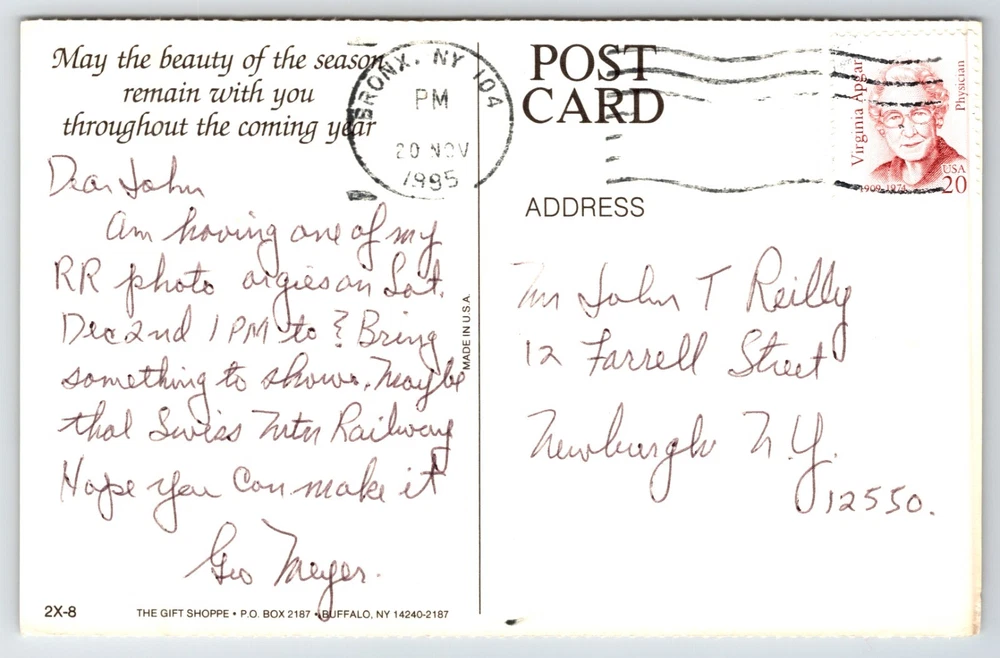 May the beauty of the season
remain with you
throughout the coming year
BRONX, NY 104
PM
20 NOV
1995
POST
CARD
Virginia Apgar
Physician
1909-1974
USA
20
ADDRESS
Dear John
Am having one of my
RR photo orgies on Sat.
Dec 2nd 1 PM to ? Bring
something to show. Maybe
that Swiss Mtn Railway
Hope you can make it
Geo Meyer.
MADE IN U.S.A.
Mr John T Reilly
12 Farrell Street
Newburgh N.Y.
12550.
2X-8
THE GIFT SHOPPE • P.O. BOX 2187 • BUFFALO, NY 14240-2187